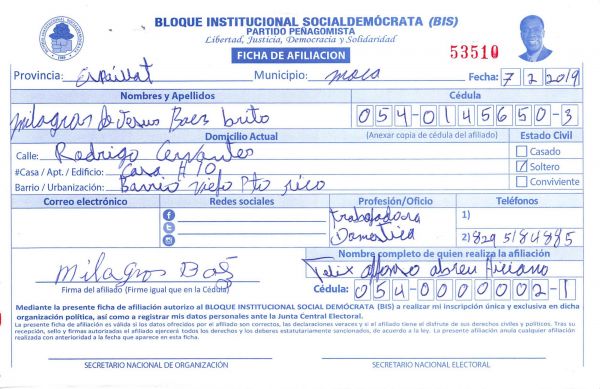 BLOQUE INSTITUCIONAL SOCIALDEMÓCRATA (BIS)
PARTIDO PEÑAGOMISTA
Libertad, Justicia, Democracia y Solidaridad
FICHA DE AFILIACION
53510
Provincia: Espaillat Municipio: moca Fecha: 7 2 2019
Nombres y Apellidos Cédula
milagros de Jesus Baez brito 054-0145650-3
Domicilio Actual (Anexar copia de cédula del afiliado) Estado Civil
Calle: Rodrigo Cervantes Casado
#Casa / Apt. / Edificio: Casa # 10 Soltero
Barrio / Urbanización: Barrio Viejo Pto rico Conviviente
Correo electrónico Redes sociales Profesión/Oficio Teléfonos
trabajadora 1)
Domestica 2) 829 5184885
Nombre completo de quien realiza la afiliación
Milagros Baez Felix alfonso abreu
Firma del afiliado (Firme igual que en la Cédula) Cédula: 054-0000002-1
Mediante la presente ficha de afiliación autorizo al BLOQUE INSTITUCIONAL SOCIAL DEMÓCRATA (BIS) a realizar mi inscripción única y exclusiva en dicha
organización política, así como a registrar mis datos personales ante la Junta Central Electoral.
La presente ficha de afiliación es válida si los datos ofrecidos por el afiliado son correctos, las declaraciones veraces y si el afiliado tiene el disfrute de sus derechos civiles y políticos. Tras su
recepción, sello y firmas autorizadas el afiliado ejercerá todos los derechos y los deberes estatutariamente sancionados, de acuerdo a la ley. La presente afiliación anula cualquier afiliación
realizada con anterioridad a la fecha que aparece en esta ficha.
SECRETARIO NACIONAL DE ORGANIZACIÓN SECRETARIO NACIONAL ELECTORAL